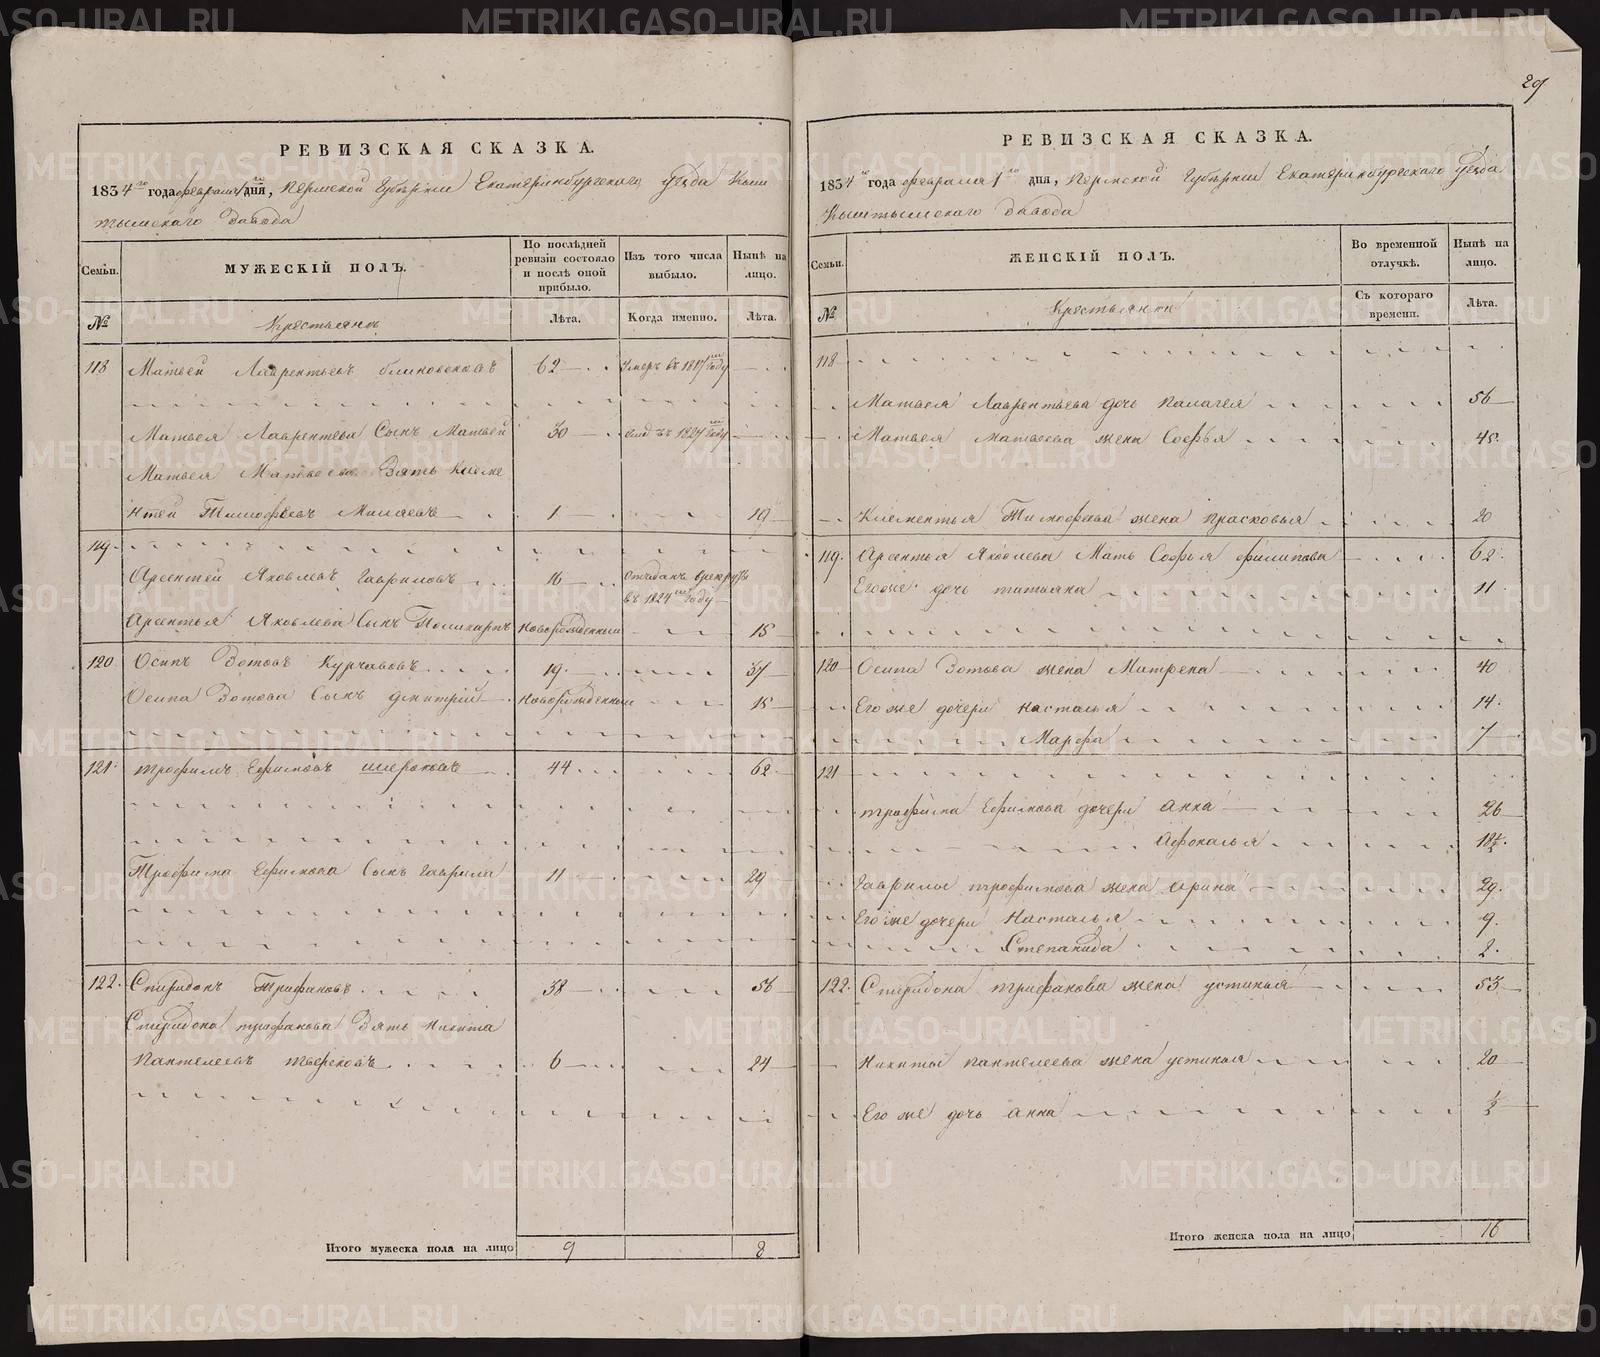 29
РЕВИЗСКАЯ СКАЗКА.
1834го года февраля 1го дня, Пермской Губернiи Екатеринбургскаго уезда Кыш
тымскаго завода
Семьи.
МУЖЕСКIЙ ПОЛЪ.
По послѣдней ревизiи состояло и послѣ оной прибыло.
Изъ того числа выбыло.
Нынѣ на лицо.
№
Крестьянъ
Лѣта.
Когда именно.
Лѣта.
118 Матвей Лаврентьевъ 62 Умеръ въ 1817м году
Матвея Лаврентева Сынъ Матвей 30 въ 1827м году
Матвея Матвеева Зять Клеме
нтей Тимофеевъ 1 19
119. Арсентей Яковлевъ Гавриловъ 16 Отъданъ врекруты
въ 1824м году
Арсентья Яковлева Сынъ Поликарпъ новорожденный 15
120 Осипъ Зотовъ Курчавовъ 19. 37
Осипа Зотова Сынъ Дмитрiй новорожденный 15
121. Трофимъ Ефимовъ 44 62
Трофима Ефимова Сынъ Гаврила 11 29
122. Спиридонъ Трифановъ 38 56
Спиридона Трифанова Зять Никита
Пантелеевъ 6 24
Итого мужеска пола на лицо 9 8
РЕВИЗСКАЯ СКАЗКА.
1834го года февраля 1го дня, Пермской Губернiи Екатеринбургскаго уезда
Кыштымскаго завода
Семьи.
ЖЕНСКIЙ ПОЛЪ.
Во временной отлучкѣ.
Нынѣ на лицо.
№
Крестьянки
Съ котораго времени.
Лѣта.
118
Матвея Лаврентьева дочь Палагея 56
Матвея Матвеева жена Софья 45.
Клементья Тимофеева жена Прасковья 20
119. Арсентья Яковлева Мать Софья Филипова 62.
Егоже дочь Татьяна 11
120 Осипа Зотова жена Матрена 40
Его же дочери Насталья 14.
Марфа 7
121
Трофима Ефимова дочери Анна 26
Афокалья 18½.
Гаврилы Трофимова жена Арина 29.
Его же дочери Насталья 9.
Степанида 2.
122. Спиридона Трифанова жена Устинья 53
Никиты Пантелеева жена Устинья 20
Его же дочь Анна ½
Итого женска пола на лицо 16
METRIKI.GASO-URAL.RU